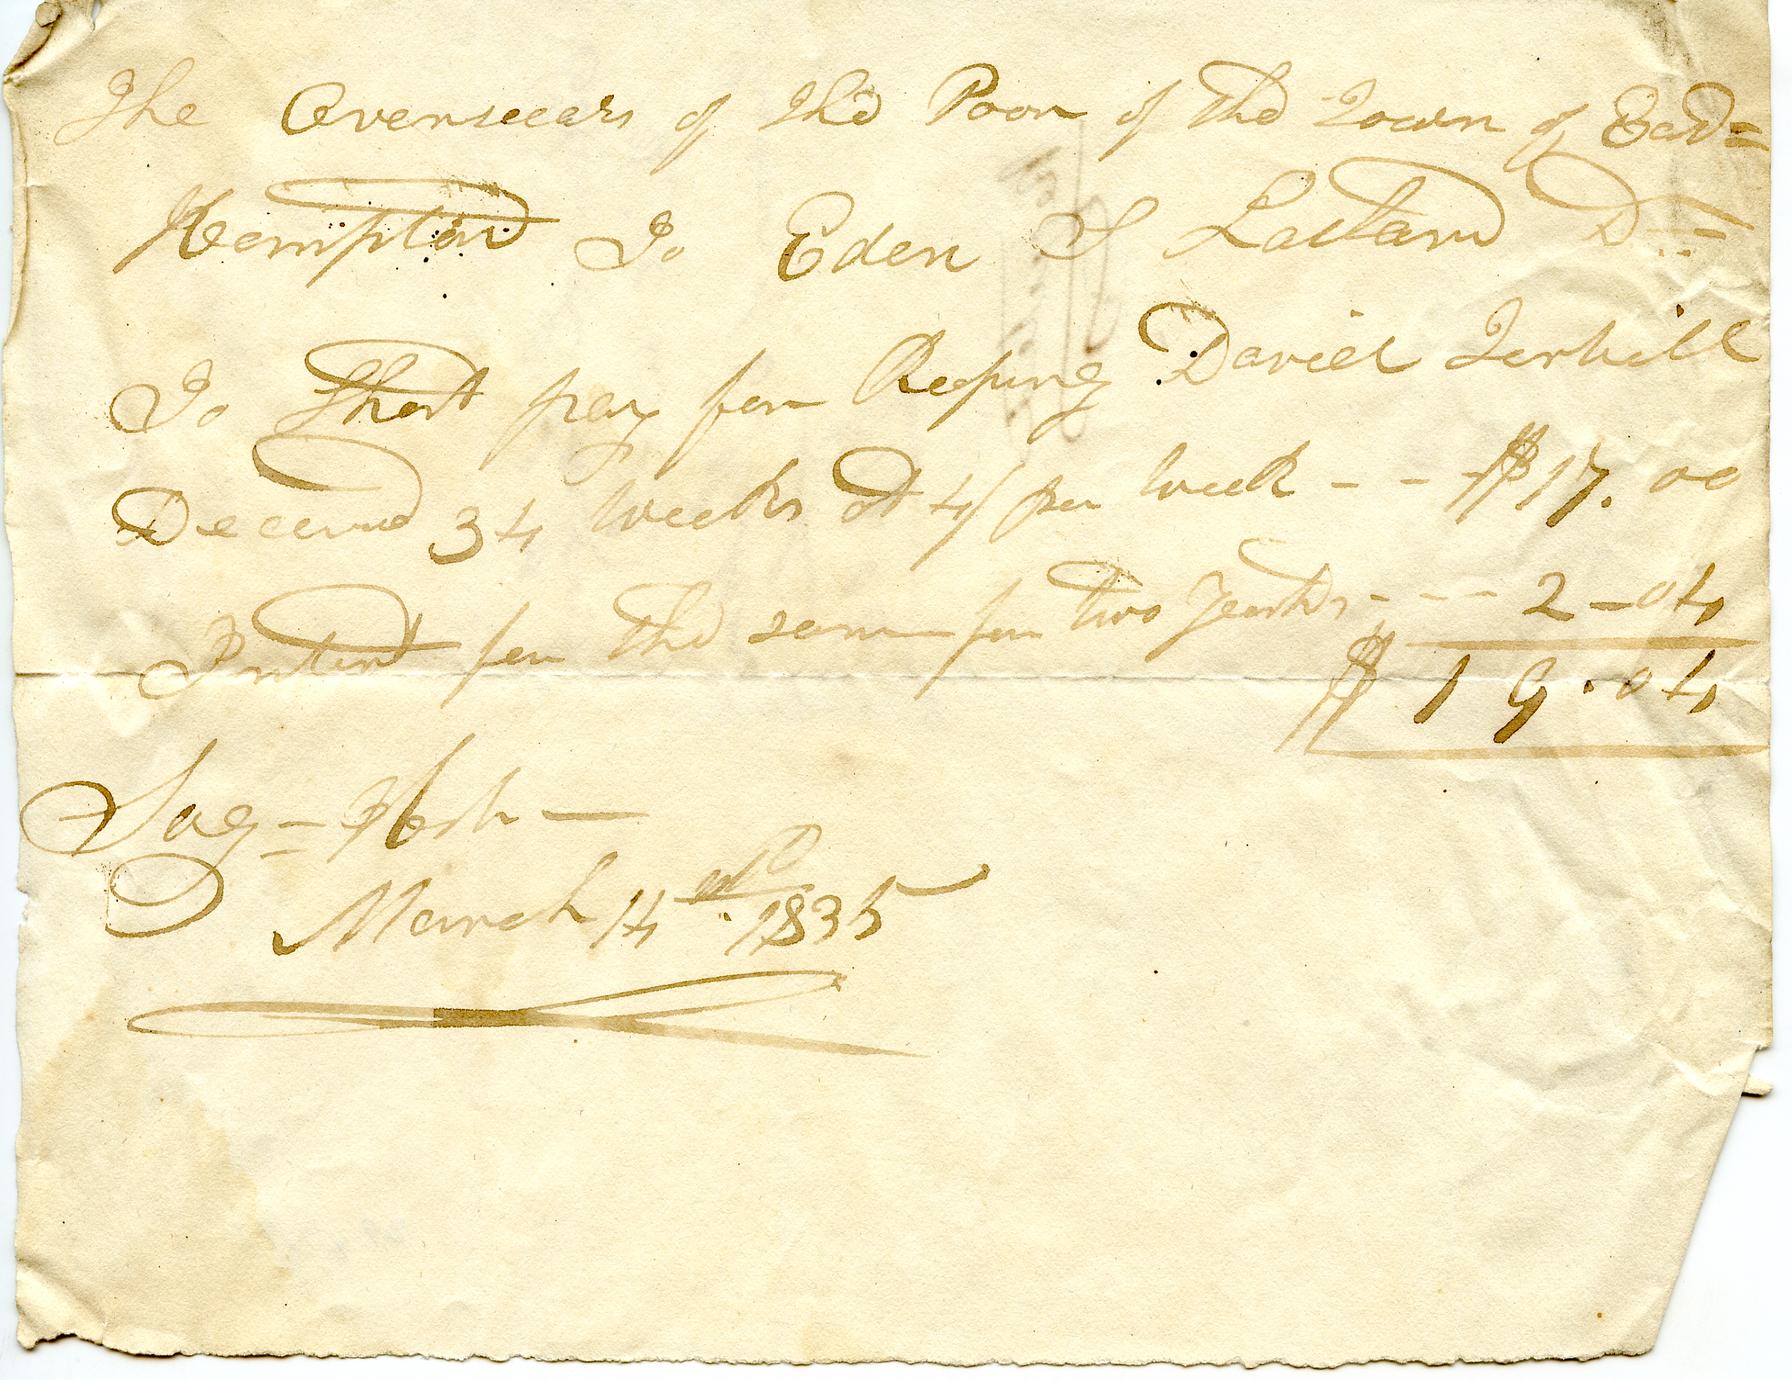 The Overseears of the Poor of the Town of East=
Hempton To Eden S Lattam Dr
To Short pay for Keeping Daniel Terbill
Deceased 34 weeks at 4/ per week - - $17.00
Intrest for the same for two years - - - 2-04
$19.04
Sag=Harbor
March 14th 1835